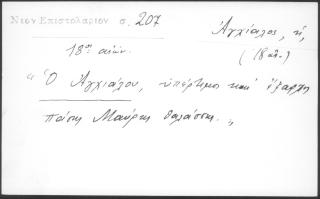 Νεον Επιστολαριον σ. 207
Ἀγχίαλος, ἡ,
18ος αἰών.
(18 αἰ.)
"Ὁ Ἀγχιάλου, ὑπέρτιμος καὶ ἔξαρχος
πάσης Μαύρης θαλάσσης."